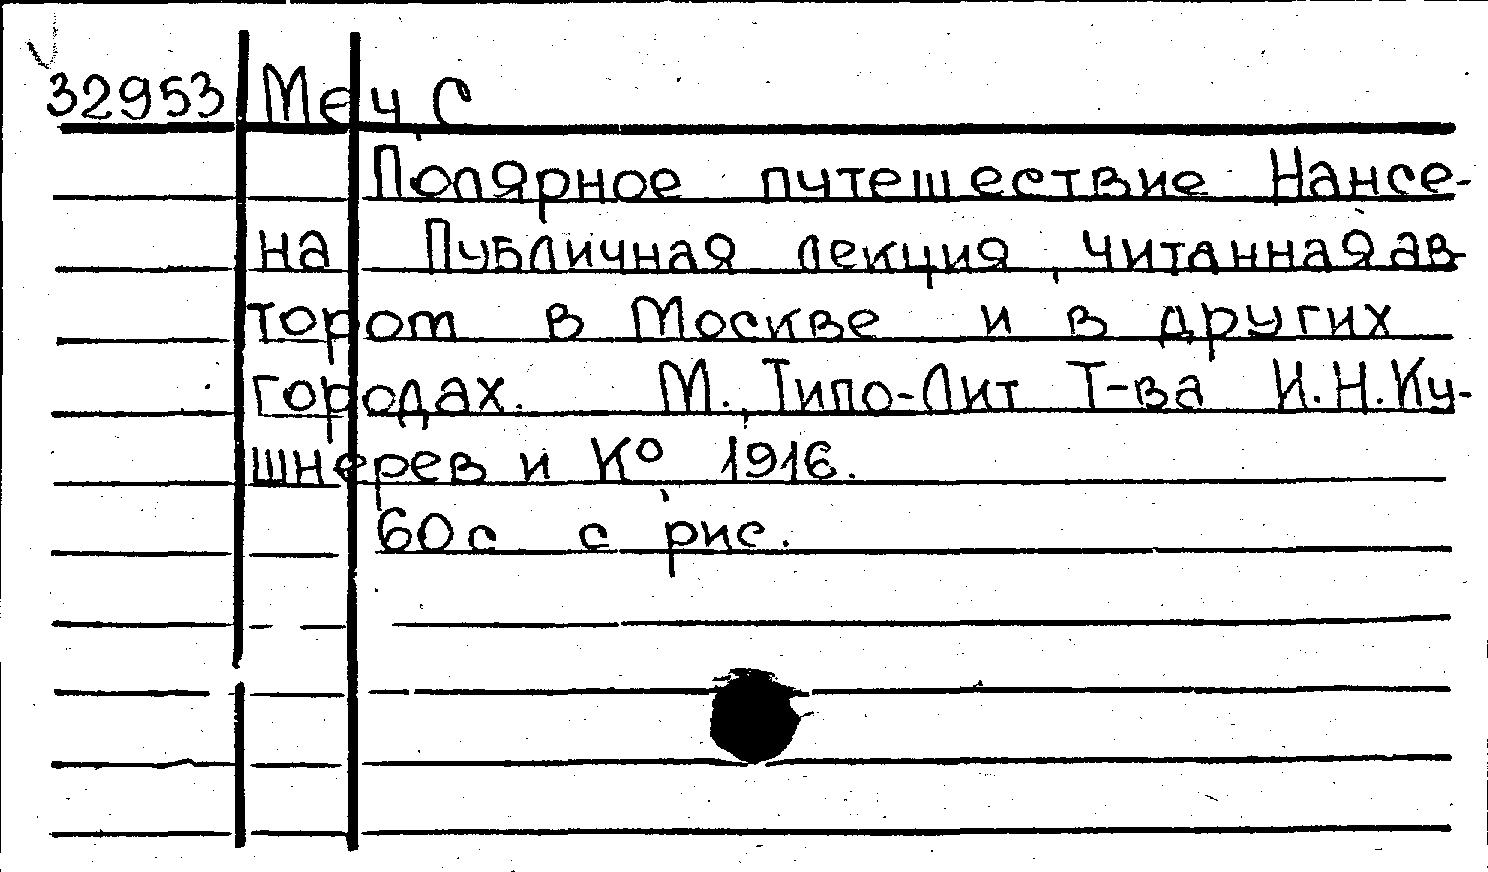 32953 Меч, С
Полярное путешествие Нансе-
на Публичная лекция, читанная ав-
тором в Москве и в других
городах. М., Типо-Лит Т-ва И.Н.Ку-
шнерев и К° 1916.
60с с рис.